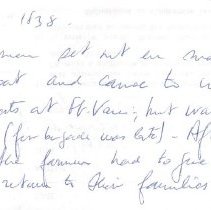 1838.
set out in
and came to
at Ft. Vanc; but was
(for brigade was late) - Af
the farmers had to give
return to their families